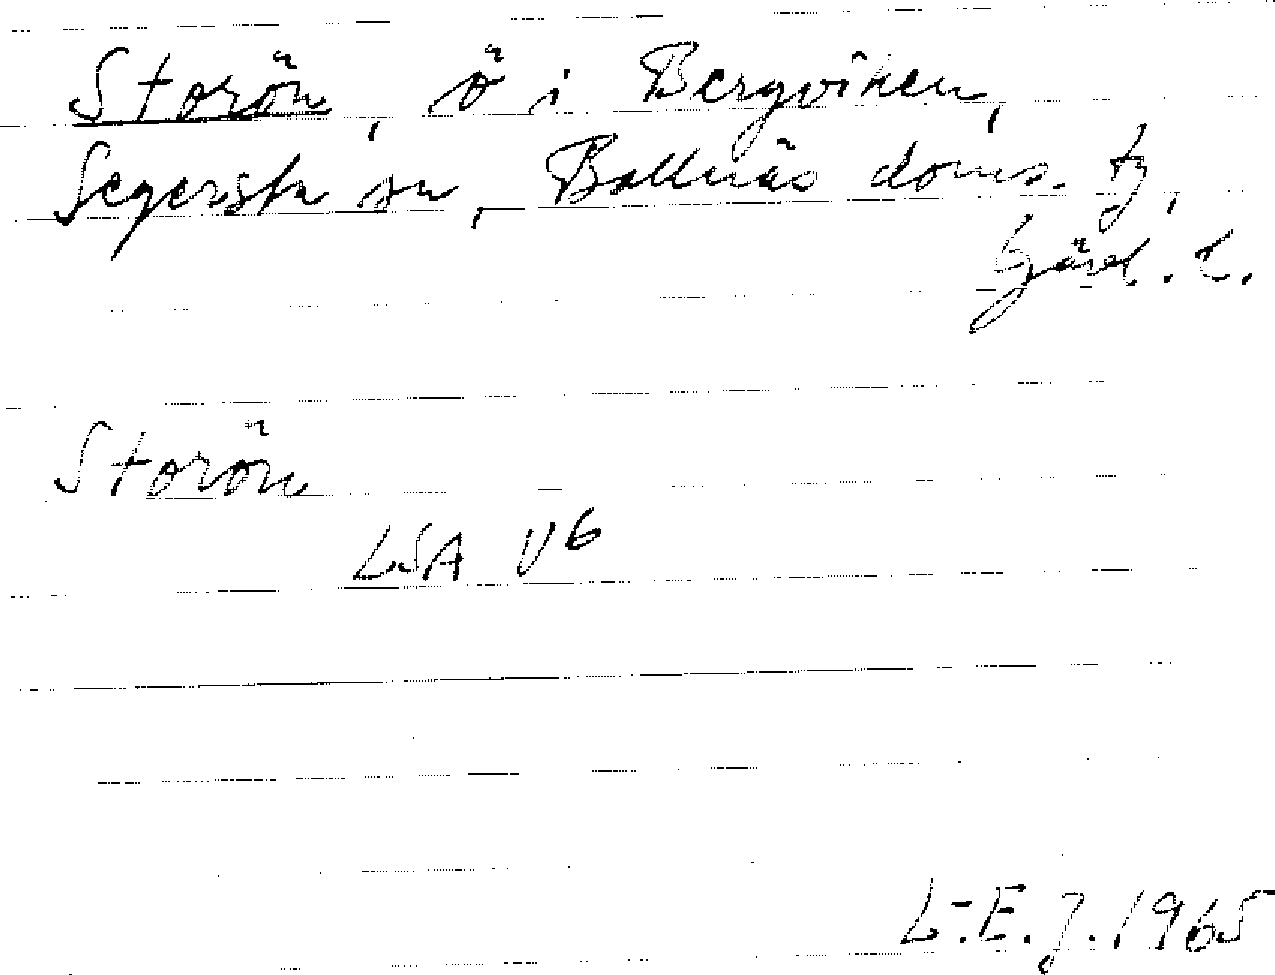 Storön, ö i Bergviken,
Segersta sn, Bollnäs doms. tg,
Gävl. l.
Storön
LSA V6
L-E. J. 1965